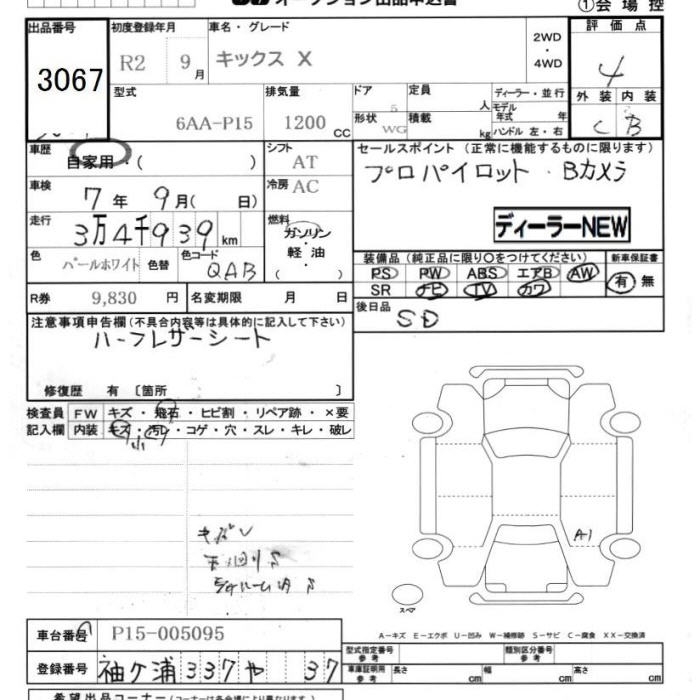 オークション出品申込書
①会場控
出品番号 3067
初度登録年月 R2 9月
車名・グレード キックス X
2WD・4WD
評価点 4
型式 6AA-P15
排気量 1200 CC
ドア 5
形状 WG
定員 人
積載 kg
ディーラー・並行
モデル年式 年
ハンドル 左・右
外装 C
内装 B
車歴 自家用・( )
シフト AT
冷房 AC
車検 7年 9月( 日)
走行 3万4千939 km
燃料 ガソリン・軽油( )
色 パールホワイト 色替
色コード QAB
R券 9,830 円
名変期限 月 日
セールスポイント (正常に機能するものに限ります)
プロパイロット・Bカメラ
ディーラーNEW
装備品 (純正品に限り○をつけてください)
PS PW ABS エアB AW
SR ナビ TV カワ
新車保証書 有 無
後日品 SD
注意事項申告欄(不具合内容等は具体的に記入して下さい)
ハーフレザーシート
修復歴 有 〔箇所 〕
検査員記入欄
FW キズ・飛石・ヒビ割・リペア跡・×要
内装 キズ・汚レ・コゲ・穴・スレ・キレ・破レ
小
キズ
A1
スペア
A-キズ E-エクボ U-凹み W-補修跡 S-サビ C-腐食 XX-交換済
車台番号 P15-005095
登録番号 袖ケ浦 337 や 37
型式指定番号 参考
類別区分番号 参考
車庫証明用 参考 長さ cm 幅 cm 高さ cm
希望出品コーナー(コーナーは各会場により異なります)